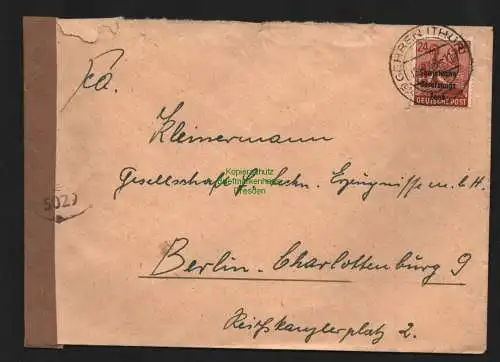 GEHREN (THÜR)
24
Sowjetische
Besatzungs
Zone
DEUTSCHE POST
Fa.
Kleinermann
Kopierschutz
Briefmarkenhaus
Dresden
Gesellschaft f. techn. Erzeugnisse m.b.H.
5029
Berlin-Charlottenburg 9
Reichskanzlerplatz 2.